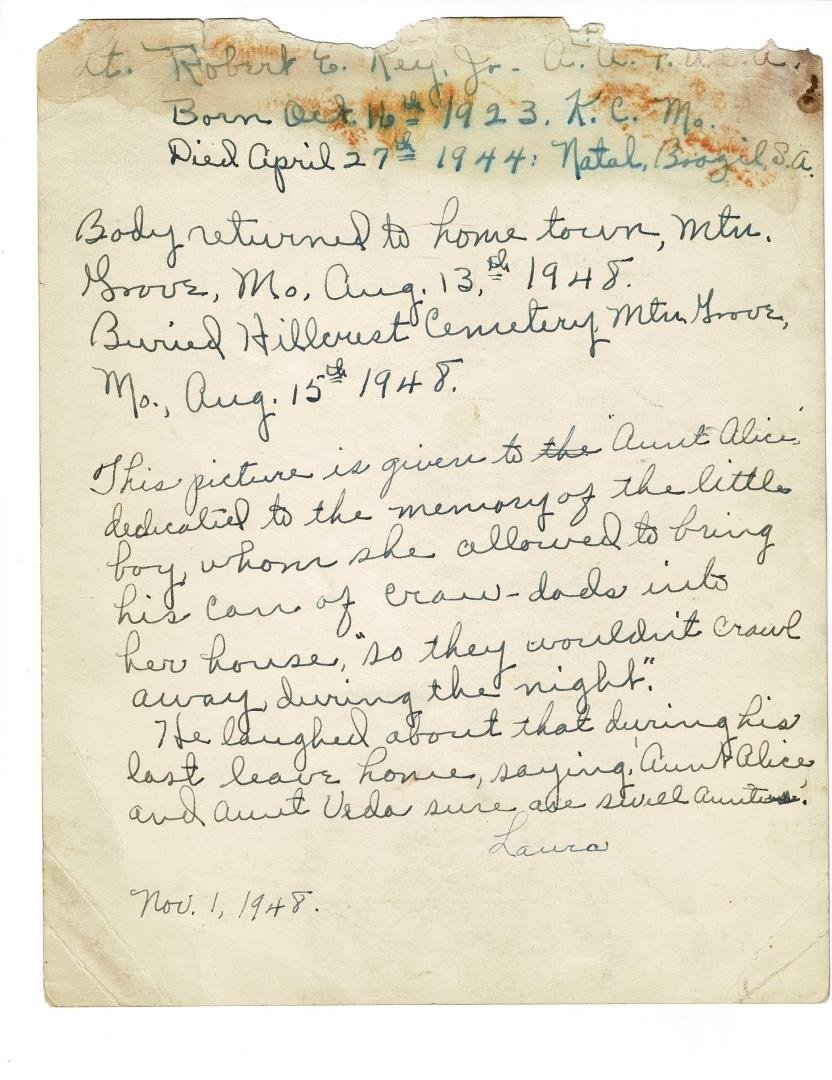 Lt. Robert E. Key, Jr. - A.A.F.U.S.A.
Born Oct. 16th 1923. K.C. Mo.
Died April 27th 1944: Natal, Brazil, S.A.
Body returned to home town, Mtn.
Grove, Mo, Aug. 13,th 1948.
Buried Hillcrest Cemetery Mtn. Grove,
Mo., Aug. 15th 1948.
This picture is given to the "Aunt Alice"
dedicated to the memory of the little
boy, whom she allowed to bring
his can of craw-dads into
her house, "so they wouldn't crawl
away, during the night".
He laughed about that during his
last leave home, saying, 'Aunt Alice
and Aunt Veda sure are swell Aunts'.
Laura
Nov. 1, 1948.